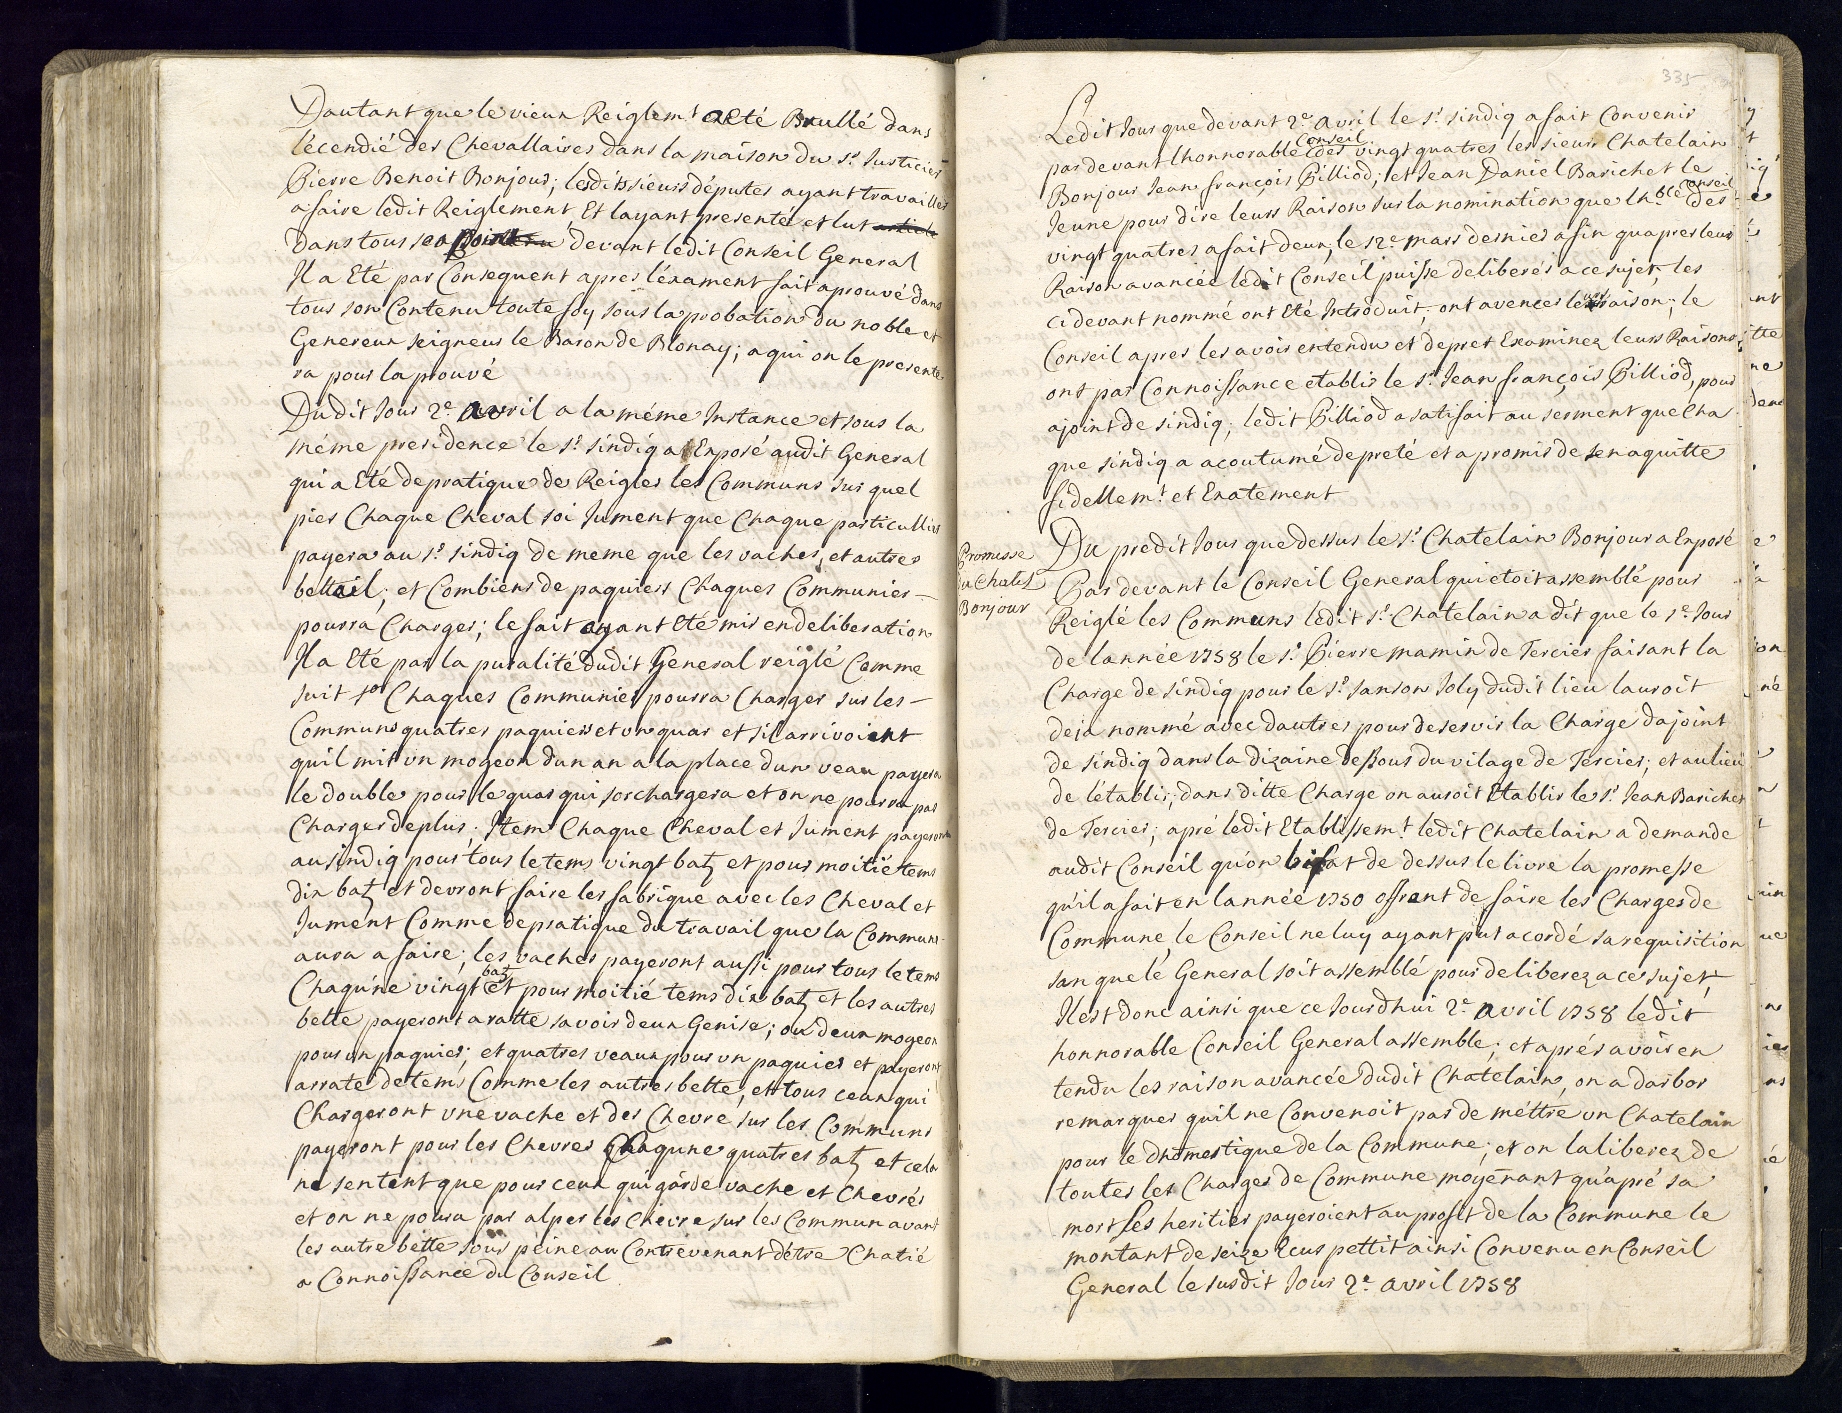 Dautant que le vieux Reiglem.t a Eté Brullé dans
lécendié des Chevallaires dans la maison du s.r Justicier
Pierre Benoit Bonjour; lesdits sieurs députes ayant travaillés
a faire ledit Reiglement, Et layant presentée et lut article
dans tous ses devant ledit Conseil General
Il a Eté par Consequent apres léxament fait aprouvé dans
tous son Contenu toute foy sous laprobation du noble et
Genereux seigneur le Baron de Blonay; a qui on le presente
ra pour laprouvé
Dudit Jour 2.e avril a la méme Instance et sous la
méme presidence le s.r sindiq a Exposé audit General
qui a Eté de pratique de Reigler les Communs sur quel
pier Chaque Cheval soi Jument que Chaque particullier
payera au s.r sindiq de meme que les vaches, et autres
bettail; et Combiens de paquiers Chaques Communier –
pourra Charger; le fait ayant Eté mis en deliberation
Il a Eté par la puralité dudit General reiglé Comme
suit 1.o Chaques Communier pourra Charger sur les –
Communs quatres paquiers et un quar et sil arrivoient
quil mit un mogeon dun an a la place dun veau payera
le double pour le quar qui sorchargera et on ne pourra pas
Charger de plus; Item Chaque Cheval et Jument payeront
au sindiq pour tous le tems vingt batz et pour moitié tems
dix batz et devront faire les fabrique avec les Cheval et
Jument Comme de pratique du travail que la Commune
aura a faire; les vaches payeront aussi pour tous le tems
batz
Chaqu'ne vingt et pour moitié tems dix batz et les autres
bette payeront a ratte savoir deux Genise; ou deux mogeon
pour un paquier; et quatres veaux pour un paquier et payeront
arrate de tems Comme les autres bette, et tous ceux qui
Chargeront une vache et des Chevre, sur les Communs
payeront pour les Chevres Chaqune quatres batz et cela
ne sentent que pour ceux qui gárde vache et Chevrés
et on ne poura pas alper les Chevre sur les Commun avant
les autre bétte sous peine au Contrevenant détre Chatié
a Connoissance du Conseil
335
Ledit Jour que devant 2.e avril le s.r sindiq a fait Convenir
Conseil
par devant lhonnorable des vingt quatres les sieurs Chatelain
Bonjour Jean françois Pilliod; et Jean Daniel Barichet le
Conseil
Jeune pour dire leurs Raison sur la nomination que lh.ble des
vingt quatres a fait deux, le 12.e mars dernier afin quapres leur
Raison avancée ledit Conseil puisse deliberer a ce sujet, les
ci devant nommé ont Eté Introduit, ont avencer leurs raison; le
Conseil apres les avoir entendu et depret Examinez leurs Raisons;
ont par Connoissance etablir le s.r Jean françois Pilliod, pour
ajoint de sindiq; ledit Pilliod a satisfait au serment que Cha
que sindiq a acoutumé de preté et a promis de senaquitte
fidellem.t et Exatement
Promesse
du Chatel.
Bonjour
Du predit Jour que dessus le s.r Chatelain Bonjour a Exposé
Par devant le Conseil General qui etoit assemblé pour
Reiglé les Communs ledit s.r Chatelain a dit que le 1.e Jour
de lannée 1758 le s.r Pierre mamin de Tercier faisant la
Charge de sindiq pour le s.r sanson Joly dudit lieu lauroit
deja nommé avec dautres pour deservir la Charge dajoint
de sindiq dans la dizaine dessous du vilage de Tercier; et au lieu
de létablir; dans ditte Charge on auroit Etablir le s.r Jean Barichet
de Tercier; apré ledit Etablissem.t ledit Chatelain a demande
audit Conseil qu'on bifat de dessus le livre la promesse
qu'il a fait en lannée 1750 offrant de faire les Charges de
Commune, le Conseil ne luy ayant put acordé sa requisition
san que le General soit assemblé pour deliberez a ce sujet,
Il est donc ainsi que ce Jourdhui 2.e avril 1758 ledit
honnorable Conseil General assemble; et aprés avoir en
tendu les raison avancée dudit Chatelain, on a dasbor
remarquer quil ne Convenoit pas de méttre un Chatelain
pour le dhomestique de la Commune; et on la liberez de
toutes les Charges de Commune moyenant qu'apré sa
mort ses heritier payeroient au profit de la Commune le
montant de seize Ecus pettit ainsi Convenu en Conseil
General le susdit Jour 2.e avril 1758